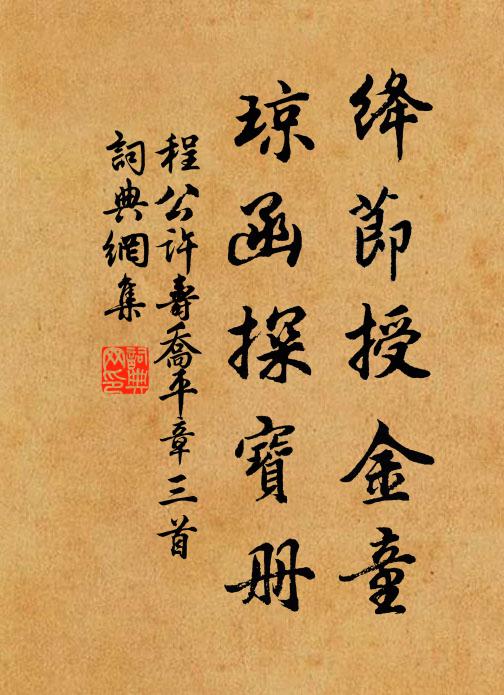 絳節授金童
琼函探寶册
程公许壽喬平章三首
詞典網集
詞典網印